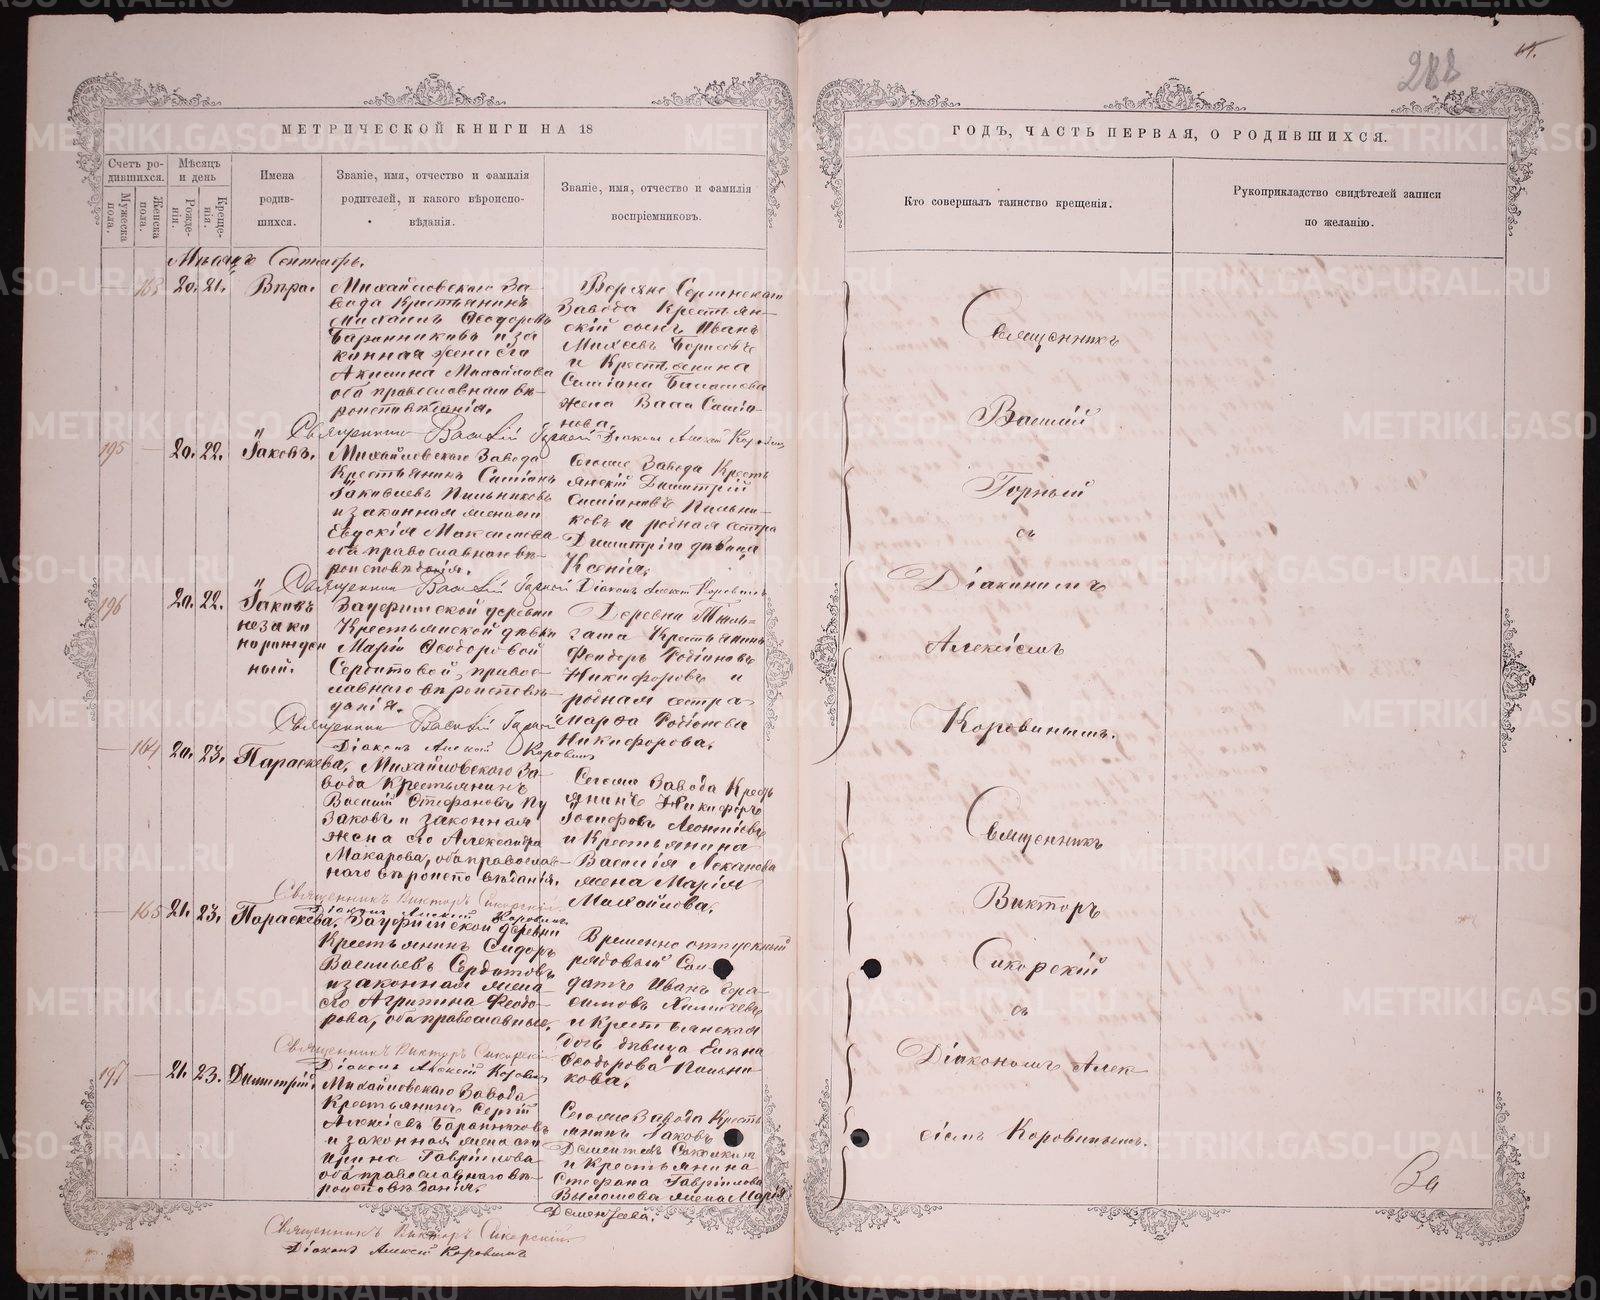 288
МЕТРИЧЕСКОЙ КНИГИ НА 18
ГОДЪ, ЧАСТЬ ПЕРВАЯ, О РОДИВШИХСЯ.
Счетъ ро-
дившихся.
Мужеска
пола.
Женска
пола.
Мѣсяцъ
и день
Рожде-
нія.
Креще-
нія.
Имена
родив-
шихся.
Званіе, имя, отчество и фамилія
родителей, и какого вѣроиспо-
вѣданія.
Званіе, имя, отчество и фамилія
воспріемниковъ.
Кто совершалъ таинство крещенія.
Рукоприкладство свидѣтелей записи
по желанію.
Мѣсяцъ Сентябрь.
163 20. 21. Вѣра.
Михайловскаго За-
вода Крестьянинъ
Михаилъ Ѳеодоровъ
Баранниковъ и за
конная жена его
Акилина Михайлова
оба православнаго вѣ-
роисповѣданія.
Сергинскаго
Завода Крестьян-
скій сынъ Иванъ
Михеевъ Борисовъ
и Крестьянина
жена Васса Симіо-
нова.
Священникъ Василій Горный Діаконъ Алексій Коровинъ
195 — 20. 22. Іаковъ.
Михайловскаго Завода
Крестьянинъ Симіонъ
Іаковлевъ Пильниковъ
и законная жена его
Евдокія Максимова
оба православнаго вѣ-
роисповѣданія.
Тогоже Завода Кресть
янскій Димитрій
Симіоновъ Пильни-
ковъ и родная сестра
Димитрія дѣвица
Ксенія.
Священникъ Василій Горный Діаконъ Алексій Коровинъ
196 20. 22. Іаковъ
незако
норожден
ный.
Зауфимской деревни
Крестьянской дѣвки
Маріи Ѳеодоровой
Сердитовой, правос-
лавнаго вѣроисповѣ-
данія.
Деревни Тюль-
гаша Крестьянинъ
Ѳеодоръ Родіоновъ
Никифоровъ и
родная сестра
Марѳа Родіонова
Никифорова.
Священникъ Василій Горный
Діаконъ Алексій Коровинъ
— 164 20. 23. Параскева.
Михайловскаго За-
вода Крестьянинъ
Василій Стефановъ Пу
заковъ и законная
жена его Александра
Макарова, оба православ-
наго вѣроисповѣданія.
Тогоже Завода Кресть
янинъ Никифоръ
Іосифовъ Леонтіевъ
и Крестьянина
Василія
жена Марія
Михайлова.
Священникъ Викторъ Сикорскій
Діаконъ Алексій Коровинъ
— 165 21. 23. Параскева.
Зауфимской деревни
Крестьянинъ Сидоръ
Васильевъ Сердитовъ
и законная жена
его Агрипина Ѳеодо-
рова, оба православные.
Временно отпускный
рядовый Сол-
датъ Иванъ Гера-
симовъ
и Крестьянская
дочь дѣвица Елена
Ѳеодорова Пильни-
кова.
Священникъ Викторъ Сикорскій
Діаконъ Алексій Коровинъ
197 — 21. 23. Димитрій.
Михайловскаго Завода
Крестьянинъ Сергій
Алексіевъ Баранниковъ
и законная жена его
Ирина Гавріилова
оба православнаго вѣ-
роисповѣданія.
Тогоже Завода Кресть
янинъ Іаковъ
Дементіевъ
и Крестьянина
Стефана Гавріилова
жена Марія
Дементіева.
Священникъ Викторъ Сикорскій
Діаконъ Алексій Коровинъ
Священникъ
Василій
Горный
съ
Діакономъ
Алексіемъ
Коровинымъ.
Священникъ
Викторъ
Сикорскій
съ
Діакономъ Алек-
сіемъ Коровинымъ.
За
METRIKI.GASO-URAL.RU